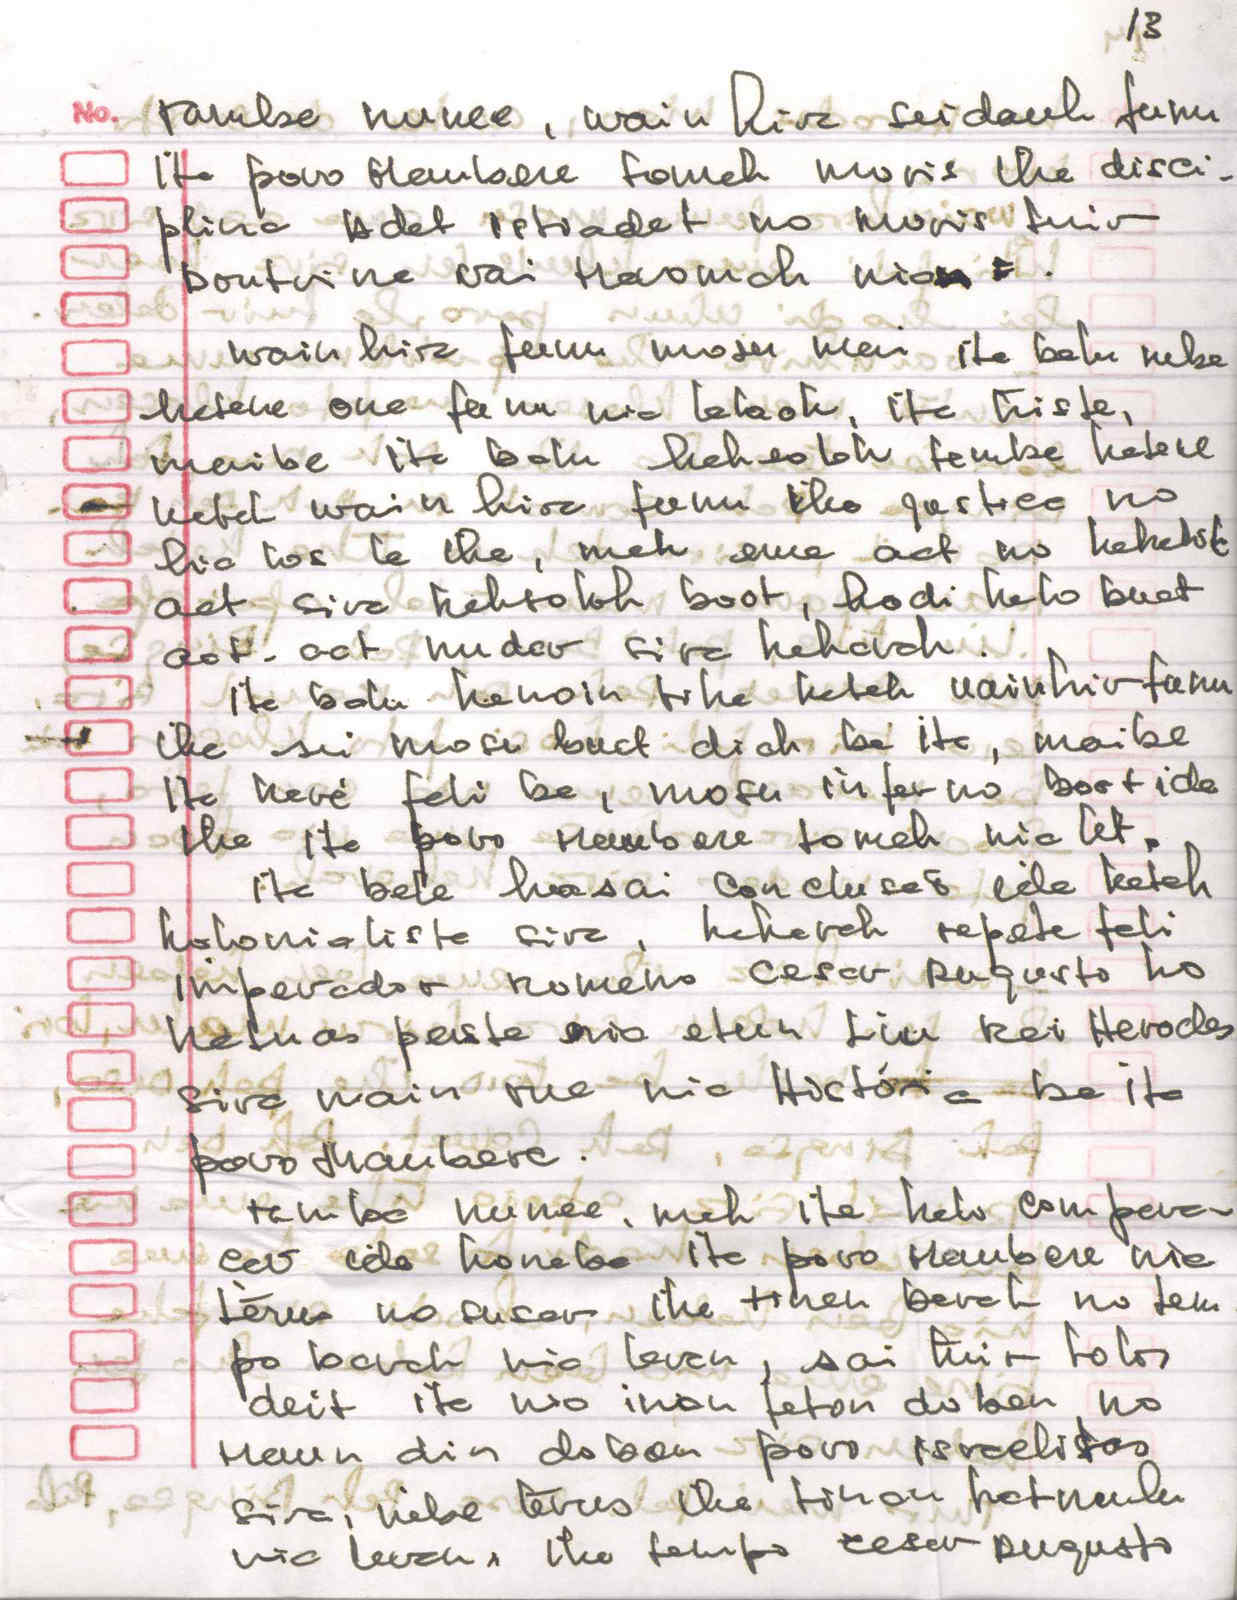 13
No.
Tamba nunee, wain hira seidauh funu
ita povo Maubere tomak moris iha disci-
plina Adat istiadat no moris tuir
Doutrina rai Maromak nia .
wain hira funu mosu mai ita balu nebe
hasene ona funu nia laloh, ita triste,
maibe ita balu haksolok tamba hasene
katak wain hira funu iha justica no
hia los la iha, mak ema aat no hahalok
aat sira haksolok boot, hodi halo buat
aat-aat nudar sira hakarak.
Ita balu hanoin fihe katak wainhir funu
iha sei mosu buat diak ba ita, maibe
ita naré fali ba, mosu inferno boot ida
iha ita povo Maubere tomak nia let.
Ita bele hasai conclusaõ ida katak
kolonialista sira, hakarak repete fali
imperador Romano Cesar Augusto no
hatnas paste nia etun liu Rei Herodes
sira wain rua nia História ba ita
povo Maubere.
Tamba nunee, mak ita halo compara-
cao ida konaba ita povo Maubere nia
terus no susar iha tinan barak no tem
po barak nia laran, sai tuir tolos
deit ita nia inan feton doben no
Maun alin doben povo israelitas
sira, nebe terus iha tinan hatnulu
nia laran, iha tempo cesar Augusto